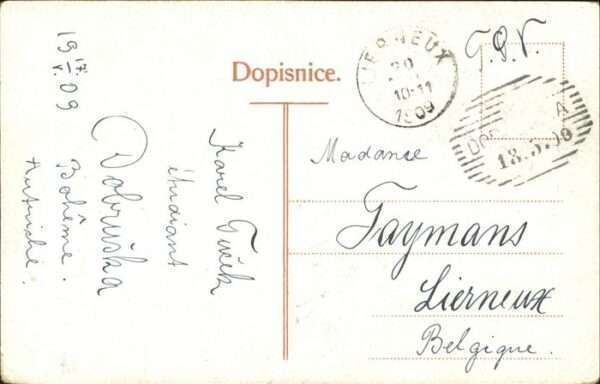 19 17/V. 09
Dobruška
Bohême.
Autriche.
Karel Tuček
étudiant
Dopisnice.
LIERNEUX
20
10-11
1909
T.S.V.
18.5.09
Madame
Taymans
Lierneux
Belgique.